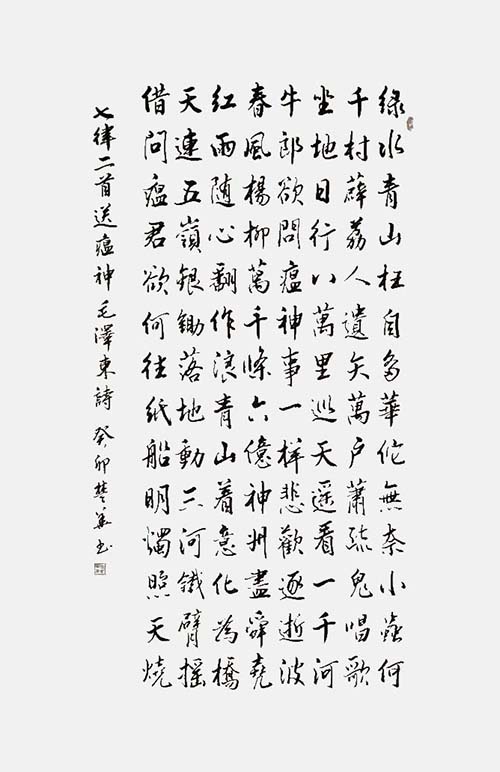 綠水青山枉自多華佗無奈小蟲何
千村薜荔人遺矢萬戶蕭疏鬼唱歌
坐地日行八萬里巡天遥看一千河
牛郎欲問瘟神事一样悲歡逐逝波
春風楊柳萬千條六億神州盡舜堯
紅雨随心翻作浪青山着意化為橋
天連五嶺銀鋤落地動三河鐵臂摇
借問瘟君欲何往紙船明燭照天燒
七律二首送瘟神毛澤東詩 癸卯楚书